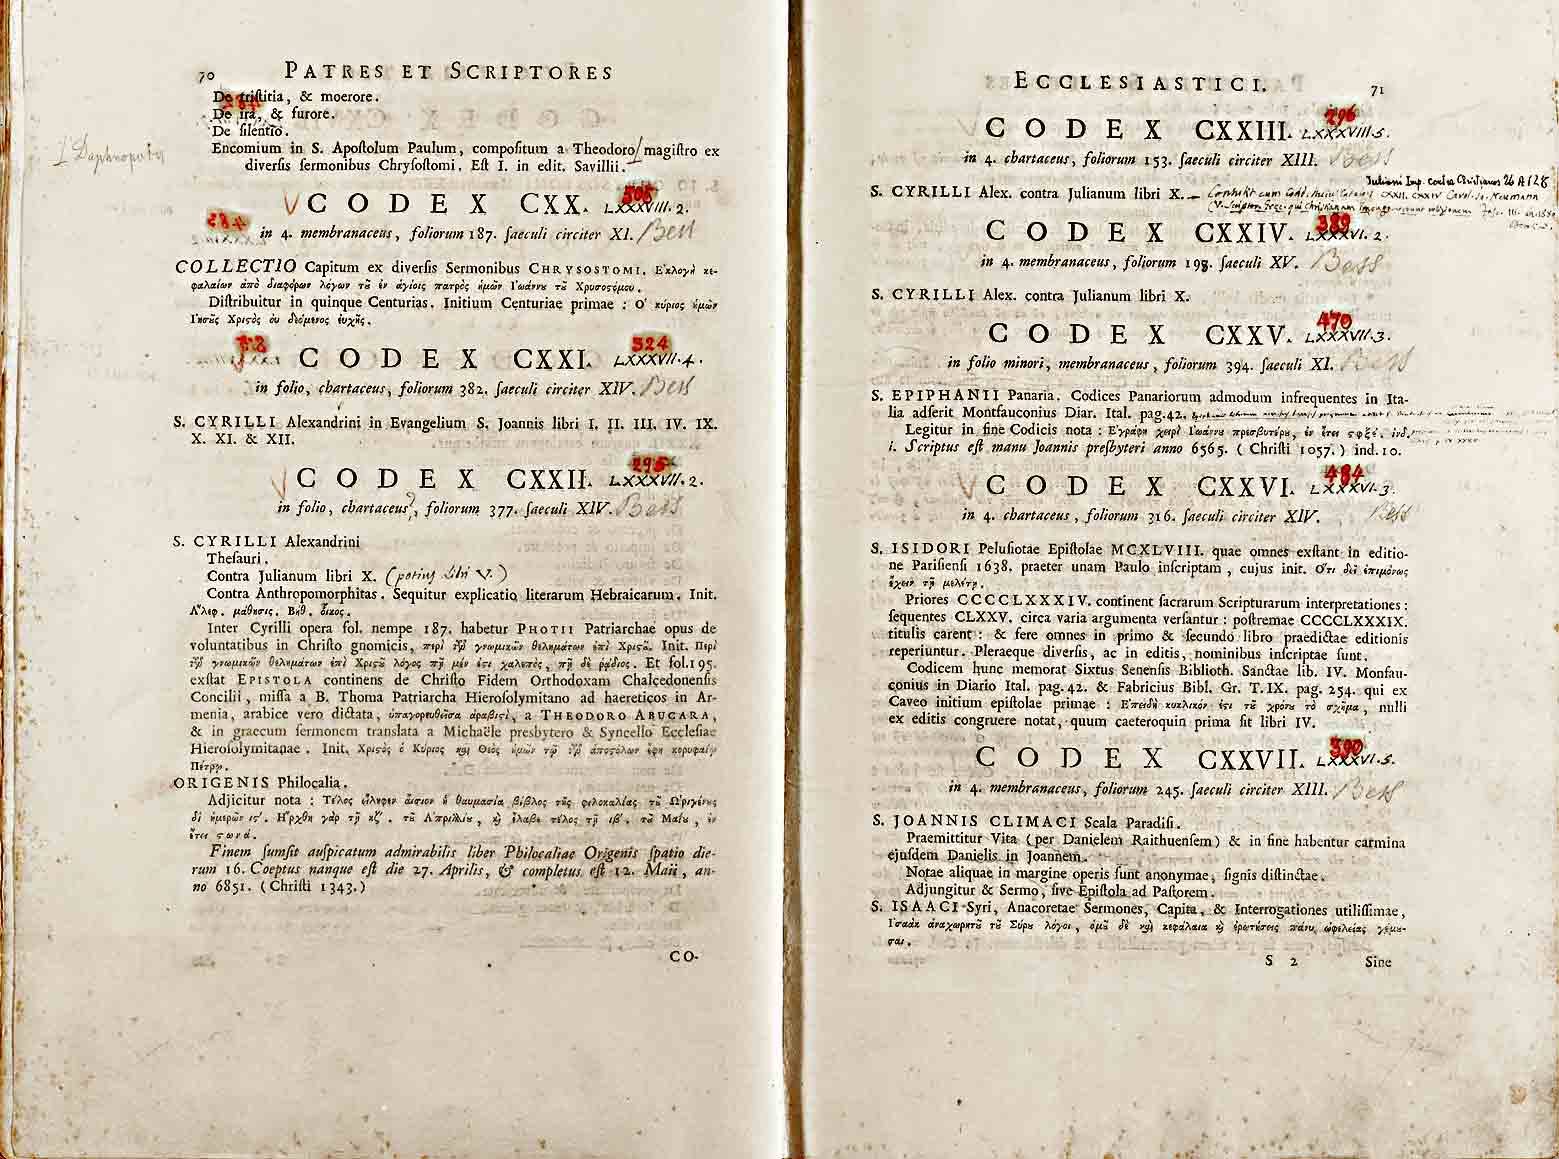 70 PATRES ET SCRIPTORES
De tristitia, & moerore.
De ira, & furore.
De silentio.
Encomium in S. Apostolum Paulum, compositum a Theodoro magistro ex
diversis sermonibus Chrysostomi. Est I. in edit. Savillii.
CODEX CXX. 505 LXXXVIII.2.
in 4. membranaceus, foliorum 187. saeculi circiter XI. Bess
COLLECTIO Capitum ex diversis Sermonibus CHRYSOSTOMI. Εκλογὴ κε-
φαλαίων ἀπὸ διαφόρων λόγων τȣ͂ ἐν ἁγίοις πατρὸς ἡμῶν Ιωάννȣ τȣ͂ Χρυσοςόμου.
Distribuitur in quinque Centurias. Initium Centuriae primae : Ο' κύριος ἡμῶν
Ιησȣ͂ς Χριςὸς ȣ δεόμενος ἐυχῆς.
CODEX CXXI. 524 LXXXVII.4.
in folio, chartaceus, foliorum 382. saeculi circiter XIV. Bess
S. CYRILLI Alexandrini in Evangelium S. Joannis libri I. II. III. IV. IX.
X. XI. & XII.
CODEX CXXII. 295 LXXXVII.2.
in folio, chartaceus?, foliorum 377. saeculi XIV. Bess
S. CYRILLI Alexandrini
Thesauri.
Contra Julianum libri X. (potius libri V.)
Contra Anthropomorphitas. Sequitur explicatio literarum Hebraicarum. Init.
Α῎λεφ. μάθησις. Βηθ. ὄικος.
Inter Cyrilli opera fol. nempe 187. habetur PHOTII Patriarchae opus de
voluntatibus in Christo gnomicis, περὶ τῶν γνωμικῶν θελημάτων ἐπὶ Χριςȣ͂. Init. Περὶ
τῶν γνωμικῶν θελημάτων ἐπὶ Χριςȣ͂ λόγος πῆ μέν ἐςι χαλεπὸς, πῆ δὲ ῥᾴδιος. Et fol. 195.
exstat EPISTOLA continens de Christo Fidem Orthodoxam Chalcedonensis
Concilii, missa a B. Thoma Patriarcha Hierosolymitano ad haereticos in Ar-
menia, arabice vero dictata, ὑπαγορευθεῖσα ἀραβιςὶ, a THEODORO ABUCARA,
& in graecum sermonem translata a Michaële presbytero & Syncello Ecclesiae
Hierosolymitanae. Init. Χριςὸς ὁ Κύριος καὶ Θεὸς ἡμῶν τῷ τῶν ἀποςόλων ἔφη κορυφαίῳ
Πέτρῳ.
ORIGENIS Philocalia.
Adjicitur nota : Τέλος εἴληφεν ἄισιον ἡ θαυμασία βίβλος τῆς φιλοκαλίας τȣ͂ Ω'ριγένης
δι ἡμερῶν ις'. Η῎ρχθη γὰρ τῇ κζ'. τȣ͂ Α'πριλλίȣ, κὴ ἔλαβε τέλος τῇ ιβ'. τȣ͂ Μαίȣ, ἐν
ἔτει ςωνά.
Finem sumsit auspicatum admirabilis liber Philocaliae Origenis spatio die-
rum 16. Coeptus nanque est die 27. Aprilis, & completus est 12. Maii, an-
no 6851. (Christi 1343.)
CO-
ECCLESIASTICI. 71
CODEX CXXIII. 296 LXXXVIII.5.
in 4. chartaceus, foliorum 153. saeculi circiter XIII. Bess
S. CYRILLI Alex. contra Julianum libri X.
Juliani Imp. contra Christianos
CODEX CXXIV. 389 LXXXVI.2.
in 4. membranaceus, foliorum 198. saeculi XV. Bess
S. CYRILLI Alex. contra Julianum libri X.
CODEX CXXV. 470 LXXXVII.3.
in folio minori, membranaceus, foliorum 394. saeculi XI. Bess
S. EPIPHANII Panaria. Codices Panariorum admodum infrequentes in Ita-
lia adserit Montfauconius Diar. Ital. pag. 42.
Legitur in fine Codicis nota : Εγράφη χειρὶ Ιωάννȣ πρεσβυτέρȣ, ἐν ἔτει ςφξέ. ἰνδ.
i. Scriptus est manu Joannis presbyteri anno 6565. (Christi 1057.) ind. 10.
CODEX CXXVI. 484 LXXXVI.3.
in 4. chartaceus, foliorum 316. saeculi circiter XIV. Bess
S. ISIDORI Pelusiotae Epistolae MCXLVIII. quae omnes exstant in editio-
ne Parisiensi 1638. praeter unam Paulo inscriptam, cujus init. Ο῞τι δεῖ ἐπιμόνως
ἔχειν τῇ μελέτῃ.
Priores CCCCLXXXIV. continent sacrarum Scripturarum interpretationes:
sequentes CLXXV. circa varia argumenta versantur : postremae CCCCLXXXIX.
titulis carent : & fere omnes in primo & secundo libro praedictae editionis
reperiuntur. Pleraeque diversis, ac in editis, nominibus inscriptae sunt.
Codicem hunc memorat Sixtus Senensis Biblioth. Sanctae lib. IV. Monfau-
conius in Diario Ital. pag. 42. & Fabricius Bibl. Gr. T. IX. pag. 254. qui ex
Caveo initium epistolae primae : Ε'πειδὴ κυκλικόν ἐςι τȣ͂ χρόνȣ τὸ σχῆμα, nulli
ex editis congruere notat, quum caeteroquin prima sit libri IV.
CODEX CXXVII. 390 LXXXVI.5.
in 4. membranaceus, foliorum 245. saeculi circiter XIII. Bess
S. JOANNIS CLIMACI Scala Paradisi.
Praemittitur Vita (per Danielem Raithuensem) & in fine habentur carmina
ejusdem Danielis in Joannem.
Notae aliquae in margine operis sunt anonymae, signis distinctae.
Adjungitur & Sermo, sive Epistola ad Pastorem.
S. ISAACI Syri, Anacoretae Sermones, Capita, & Interrogationes utilissimae,
Ισαὰκ ἀναχωρητȣ͂ τȣ͂ Σύρȣ λόγοι, ὁμȣ͂ δὲ καὶ κεφάλαια κὴ ἐρωτήσεις πάνυ ὠφελείας γέμȣ-
σαι.
S 2 Sine